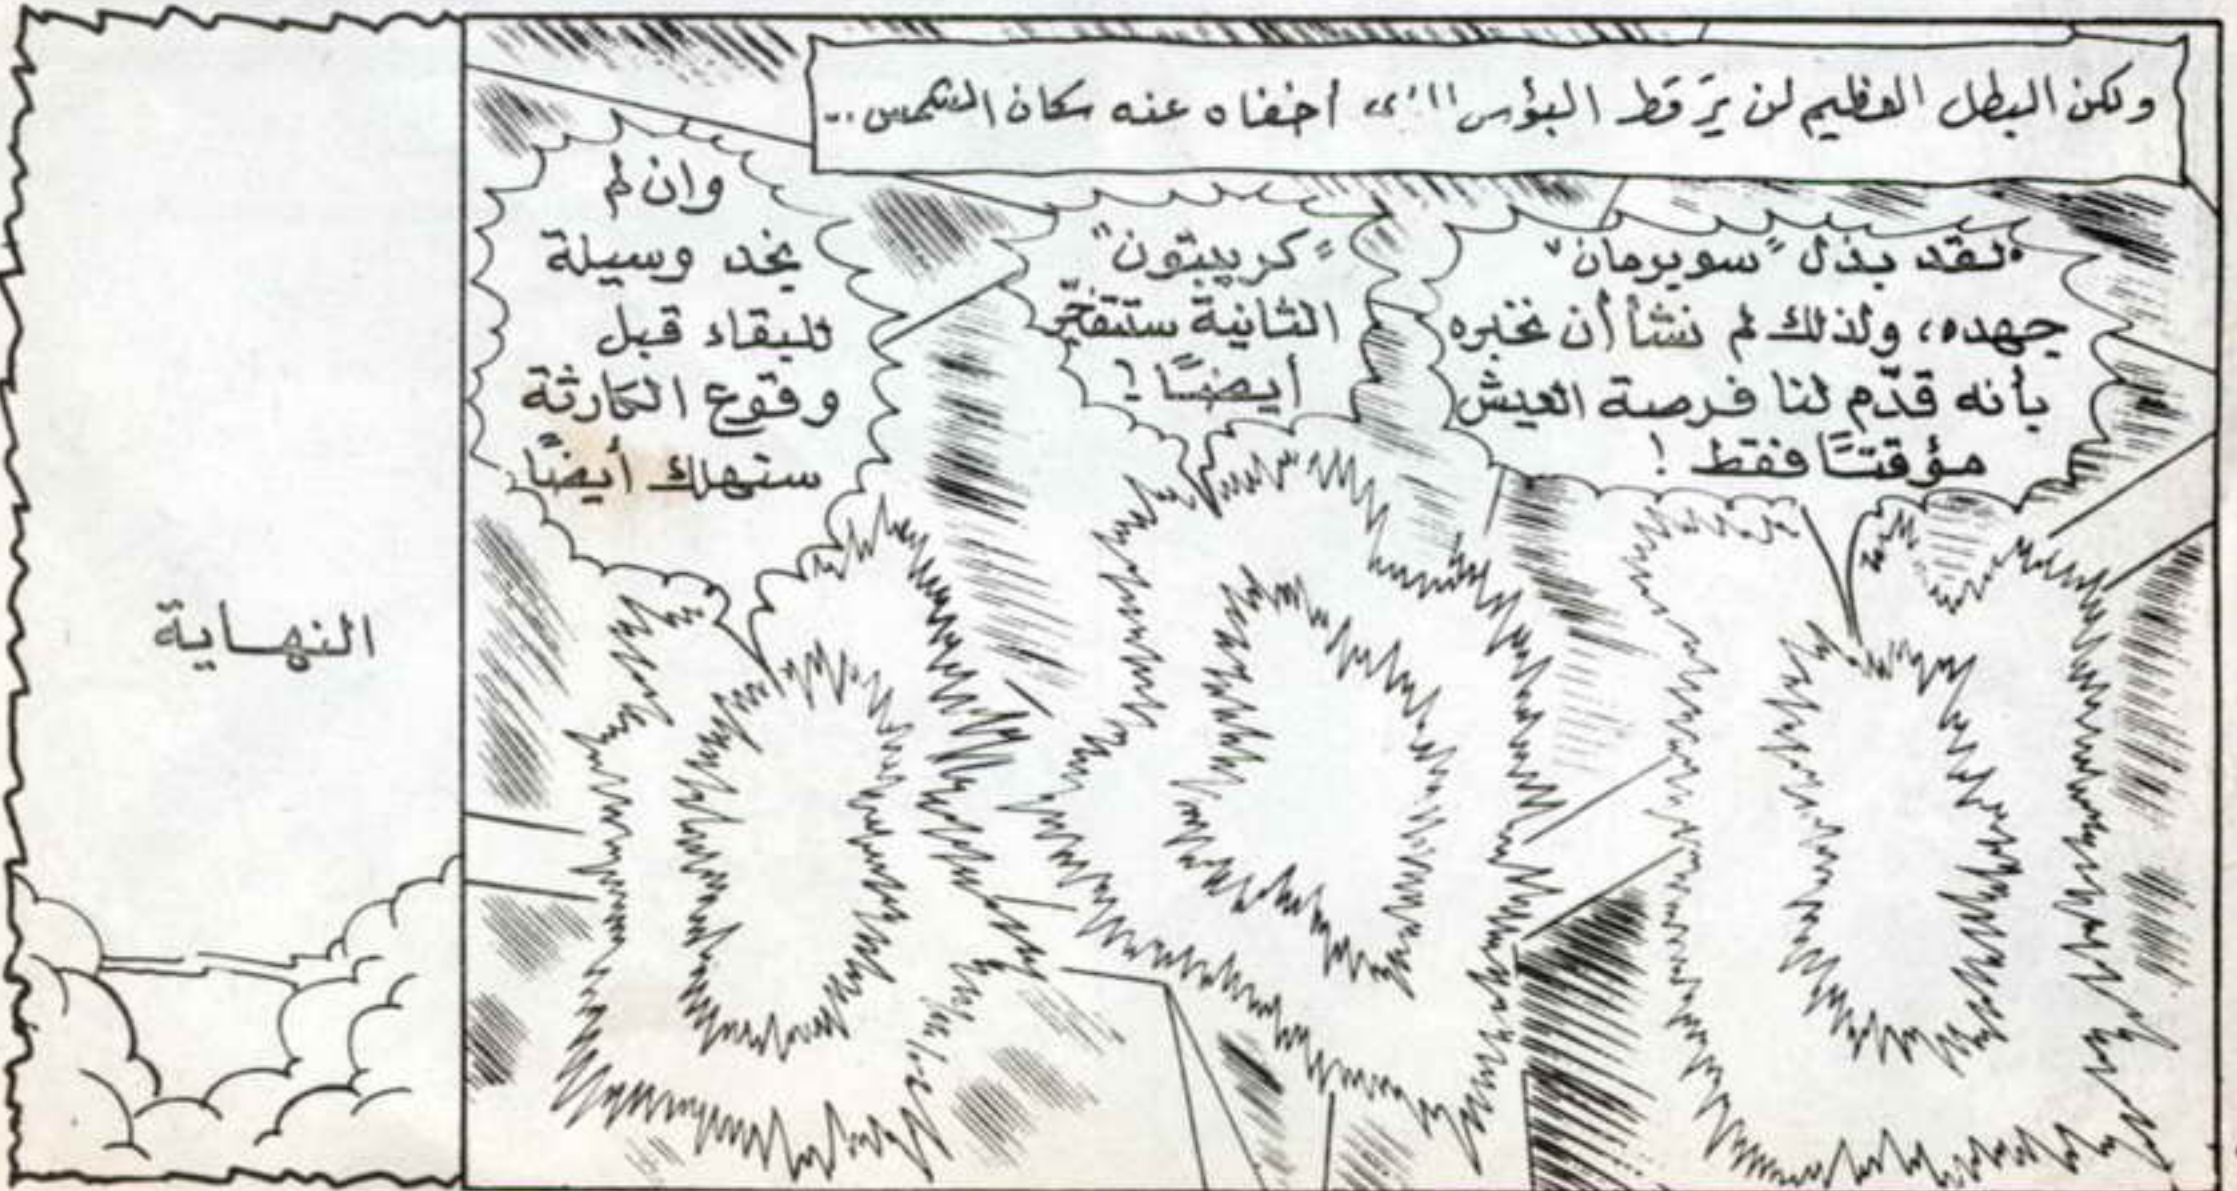 ولكن البطل العظيم لن يَرَ قط البؤس أخفاه عنه سكان الشمس..
لقد بذل "سوبرمان"
جهده، ولذلك لم نشأ أن نخبره
بأنه قدّم لنا فرصة العيش
مؤقتًا فقط!
"كريبتون"
الثانية ستنفجّر
أيضًا!
وان لم
نجد وسيلة
للبقاء قبل
وقوع الكارثة
سنهلك أيضًا
النهاية